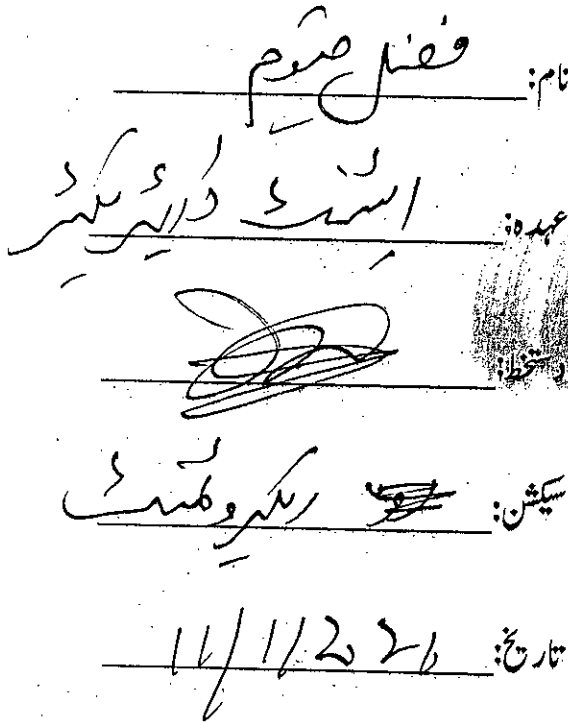 نام: فضل قیوم
عہدہ: اسٹنٹ ڈائریکٹر
دستخط:
سیکشن: ریکروٹمنٹ
تاریخ: